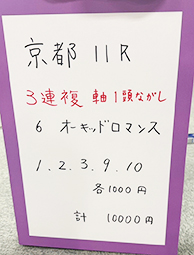 京都 11R
3連複 軸1頭ながし
6 オーキッドロマンス
1.2.3.9.10
各1000円
計 10000円